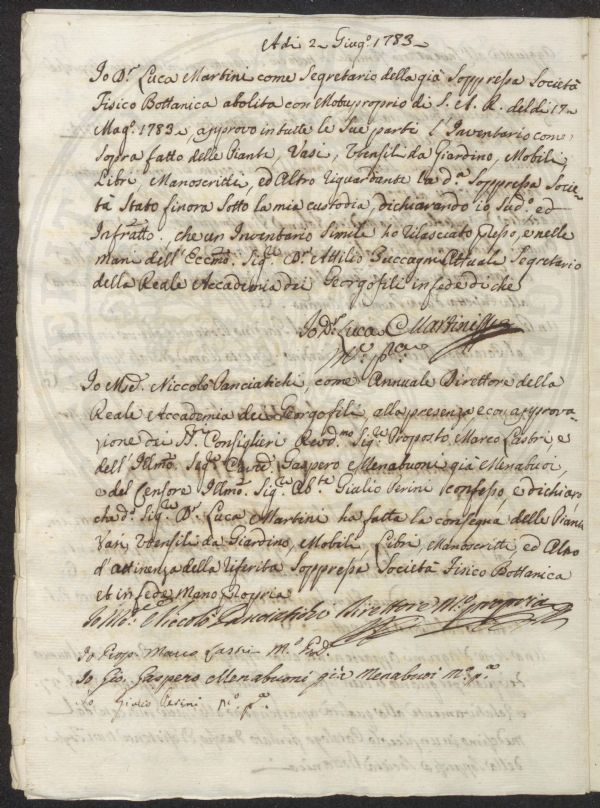 Adi 2 Giugº 1783
Io Dr. Luca Martini come Segretario della già Soppressa Società
Fisico Bottanica abolita con Motuproprio di S. A. R. del dì 17
Magº 1783, approvo in tutte le Sue parti l'Inventario come
Sopra fatto delle Piante, Vasi, Utensili da Giardino, Mobili,
Libri, Manoscritti, ed Altro riguardante la da Soppressa Socie-
tà Stato finora Sotto la mia custodia, dichiarando io Sudº ed
Infratto. che un Inventario Simile ho rilasciato presso, e nelle
mani dell'Eccmo. Sigre Dr. Attilio Zuccagni Attuale Segretario
della Reale Accademia dei Georgofili in fede di che
Io Dr. Luca Martini
Mº. pa
Io Niccolò Panciatichi come Annuale Direttore della
Reale Accademia dei Georgofili, alla presenza e con approva-
zione dei SSri Consiglieri Revdmo Sigre Proposto Marco Lastri e
dell'Illmo. Sigre Gaspero Menabuoni già Menabuoi,
e del Censore Illmo. Sigre Abte Giulio Perini confesso, e dichiaro
che dº Sigre Dr. Luca Martini ha fatta la consegna delle Piante
Vasi, Utensili da Giardino, Mobili, Libri, Manoscritti, ed Altro
d'attinenza della riferita Soppressa Società Fisico Bottanica
et in fede Mano Propria
Io Niccolò Panciatichi Direttore Mº propria
Io Propº Marco Lastri Mº
Io Gio. Gaspero Menabuoni già Menabuoi mº pa
Io Giulio Perini mº pa